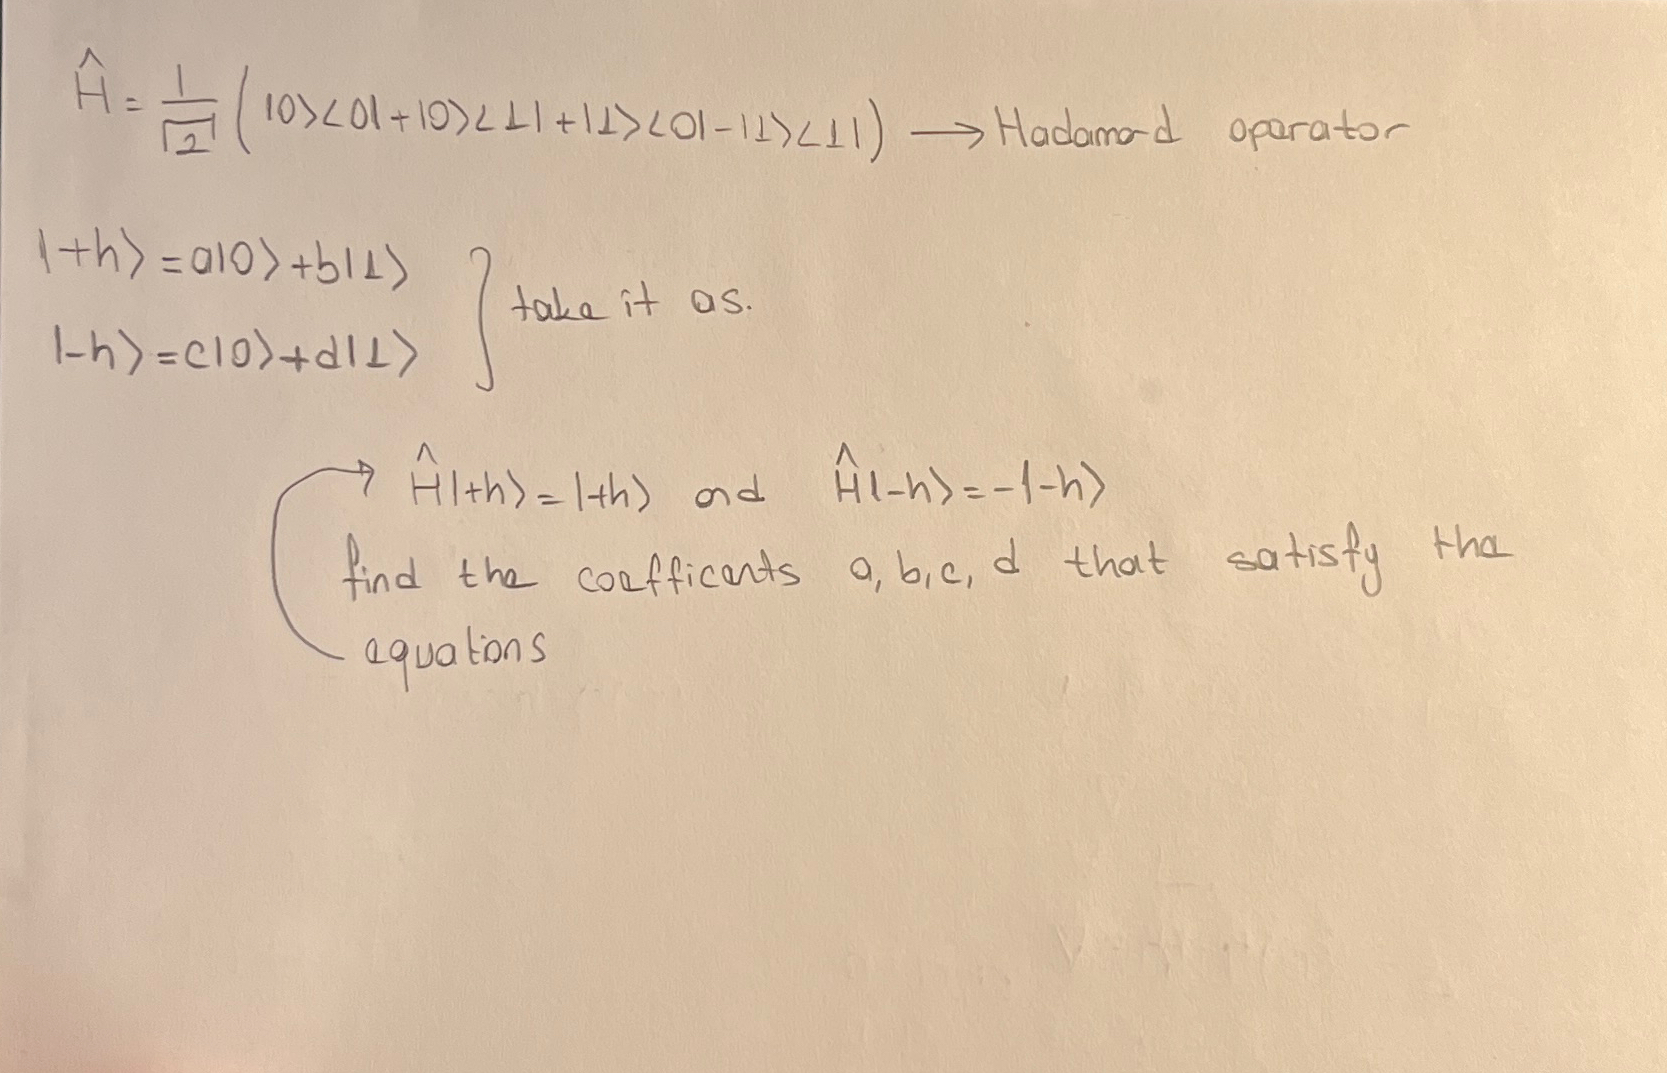 Ĥ = 1/√2 (|0><0| + |0><1| + |1><0| - |1><1|) → Hadamard operator
|+h> = a|0> + b|1>
|-h> = c|0> + d|1>
} take it as.
Ĥ|+h> = |+h> and Ĥ|-h> = -|-h>
find the coefficents a, b, c, d that satisfy the
equations